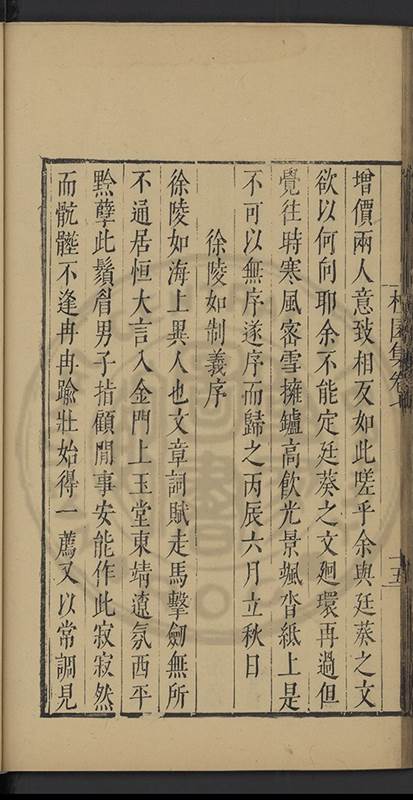 增價兩人意致相反如此嗟乎余與廷葵之文
欲以何向耶余不能定廷葵之文廻環再過但
覺往時寒風密雪擁鑪高飲光景颯沓紙上是
不可以無序遂序而歸之丙辰六月立秋日
徐陵如制義序
徐陵如海上異人也文章詞賦走馬擊劒無所
不通居恒大言入金門上玉堂東靖遼氛西平
黔孽此鬚眉男子指顧閒事安能作此寂寂然
而骯髒不逢冉冉踰壯始得一薦又以常調見